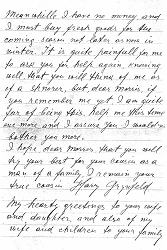 Meanwhile I have no money and
I must buy fresh goods for the
coming season not later as ma in
winter. It is quite painfull for me
to ask you for help again knowing
well that you will think of me as
of a shnorer, but dear Morris if
you remember me yet I am quite
far of being this, help me this time
one more and I assure you I would
bother you more.
I hope dear Morris that you will
try your best for your cousin as a
man of family. I remain your
true cousin Harry
My hearty greetings to your wife
and daughter and also of my
wife and children to your family